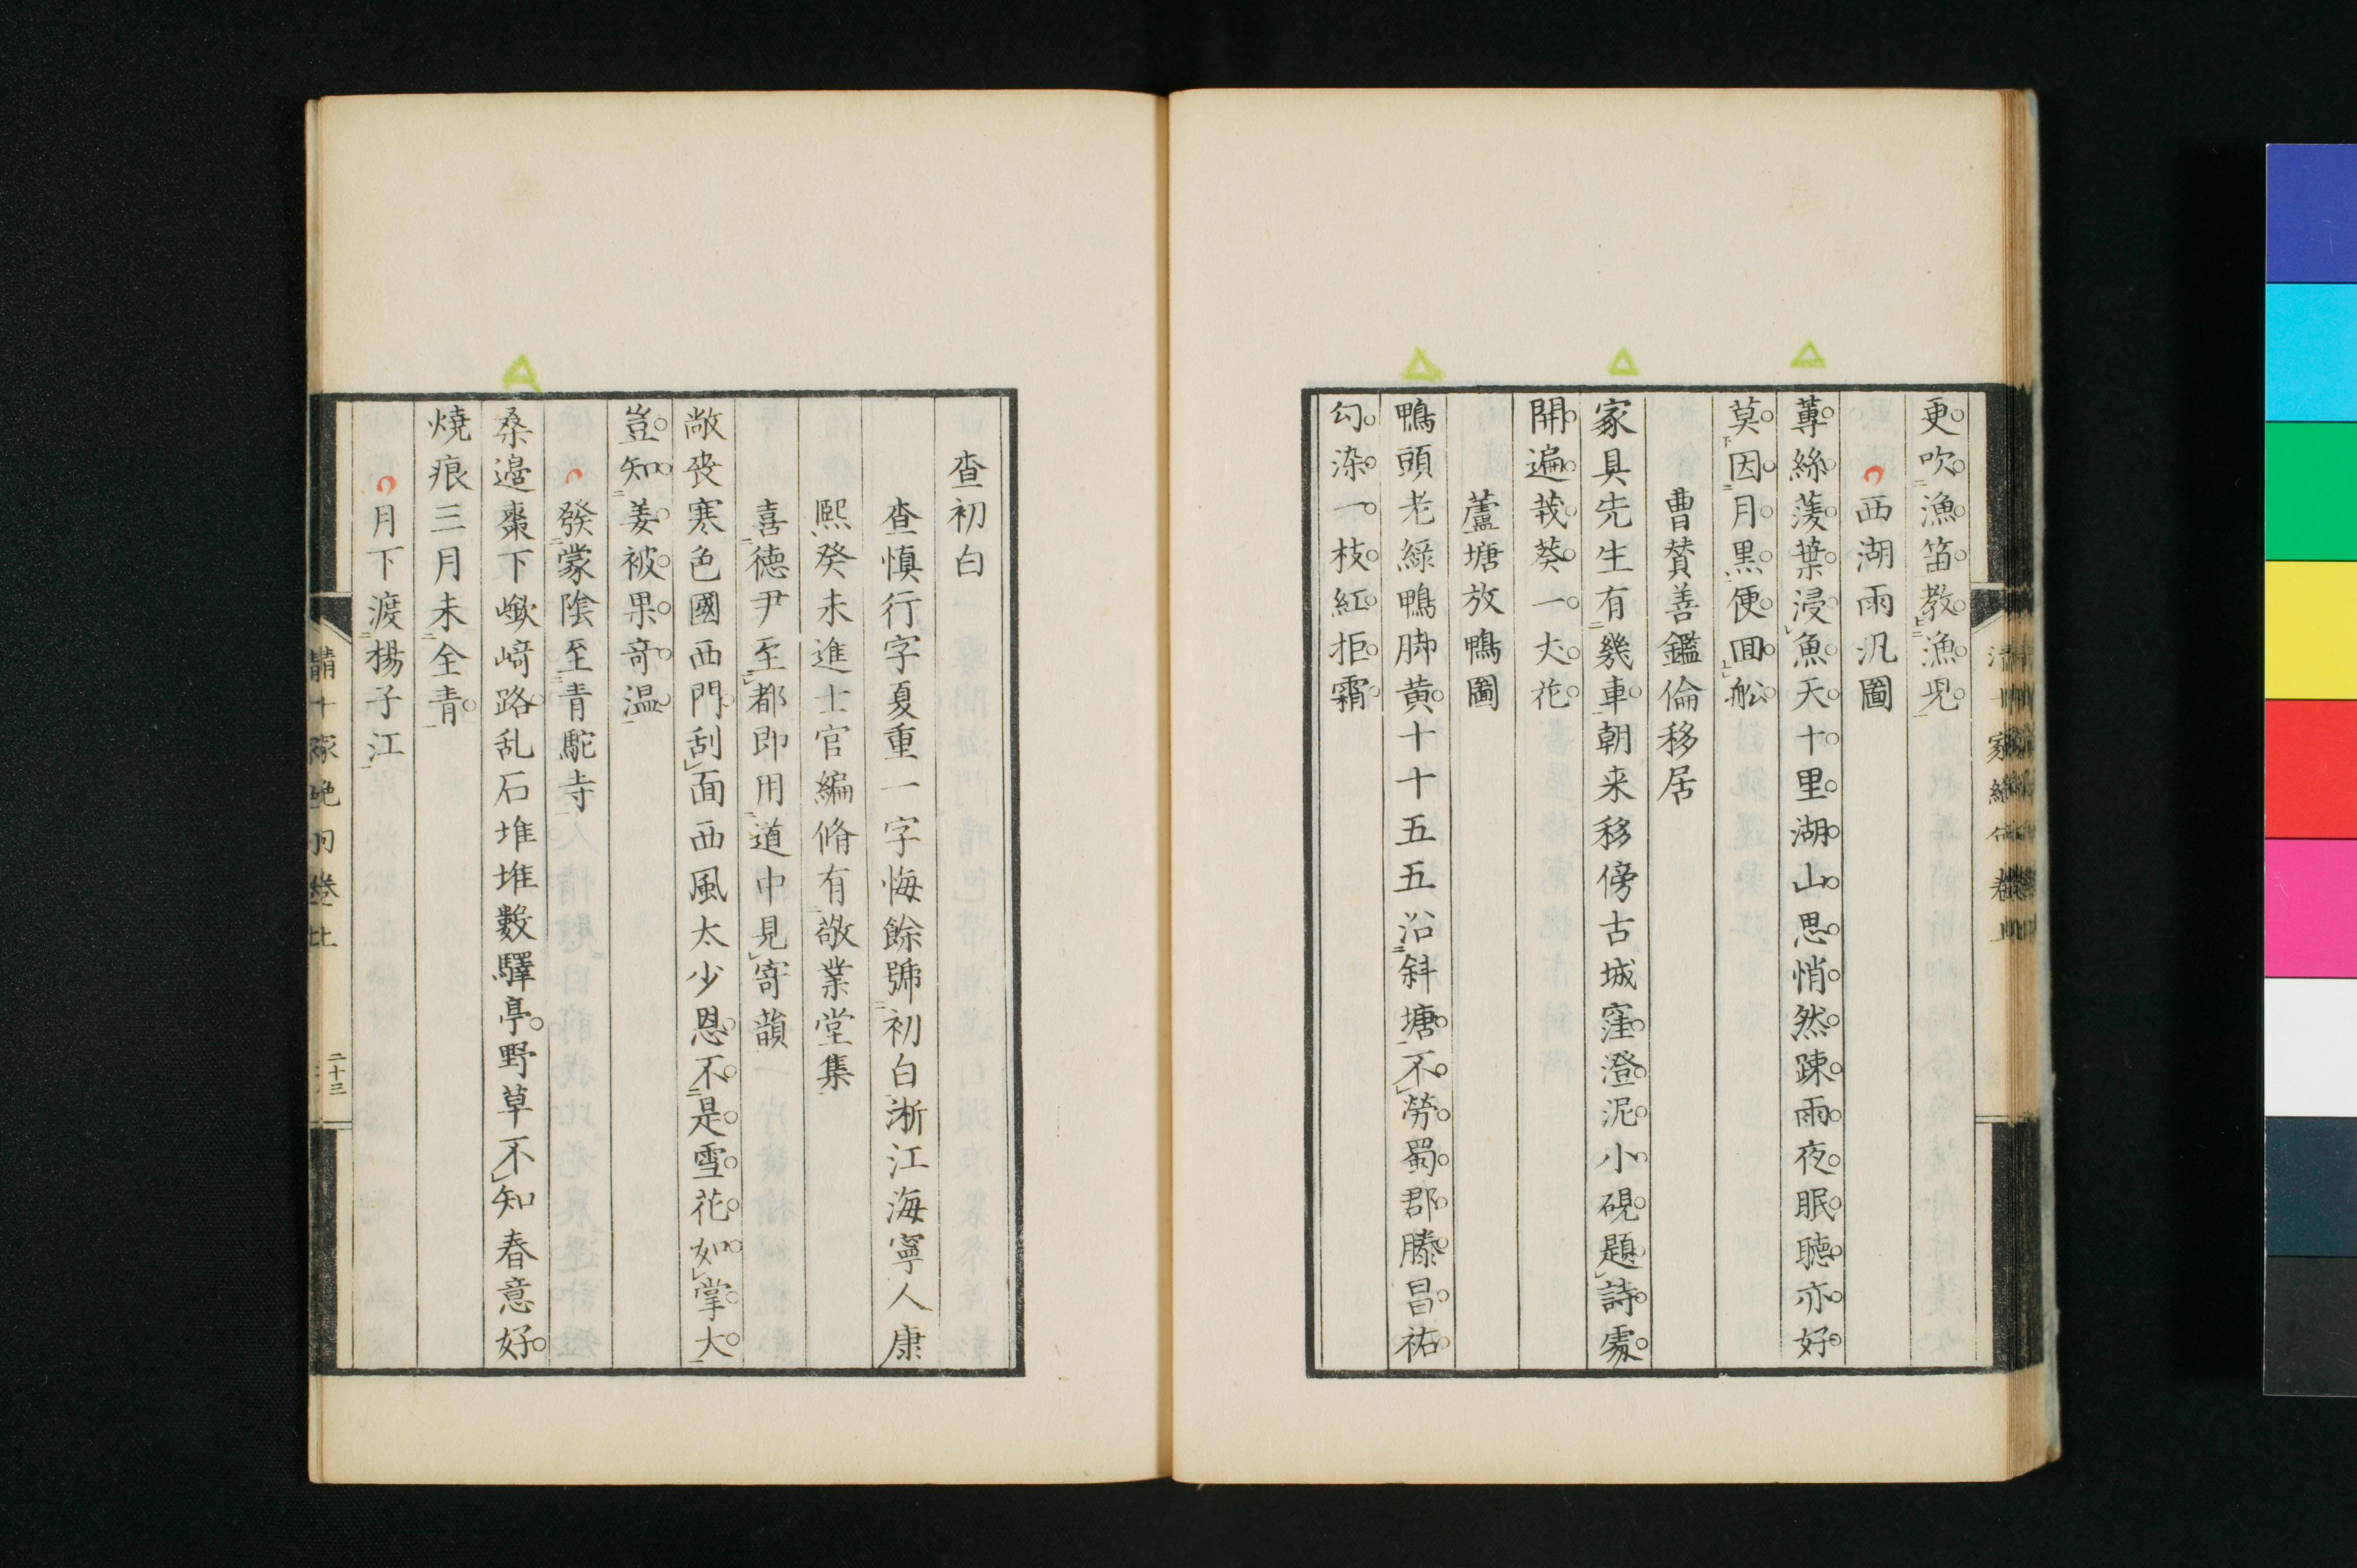 更吹漁笛教漁児
西湖雨汎圖
蓴絲蔆葉浸魚天十里湖山思悄然踈雨夜眠聴亦好
莫因月黒便囬舩
曹賛善鑑倫移居
家具先生有幾車朝来移傍古城窪澄泥小硯題詩處
開遍莪葵一丈花
蘆塘放鴨圖
鴨頭老緑鴨脚黄十十五五沿斜塘不勞蜀郡滕昌祐
勾染一枝紅拒霜
査初白
査慎行字夏重一字悔餘號初白淅江海寧人康
熙癸未進士官編脩有敬業堂集
喜徳尹至都即用道中見寄韻
敞裘寒色國西門刮面西風太少恩不是雪花如掌大
豈知姜被果竒温
發蒙陰至青駝寺
桑邉棗下嶔﨑路乱石堆堆數驛亭野草不知春意好
焼痕三月未全青
月下渡楊子江
二十三